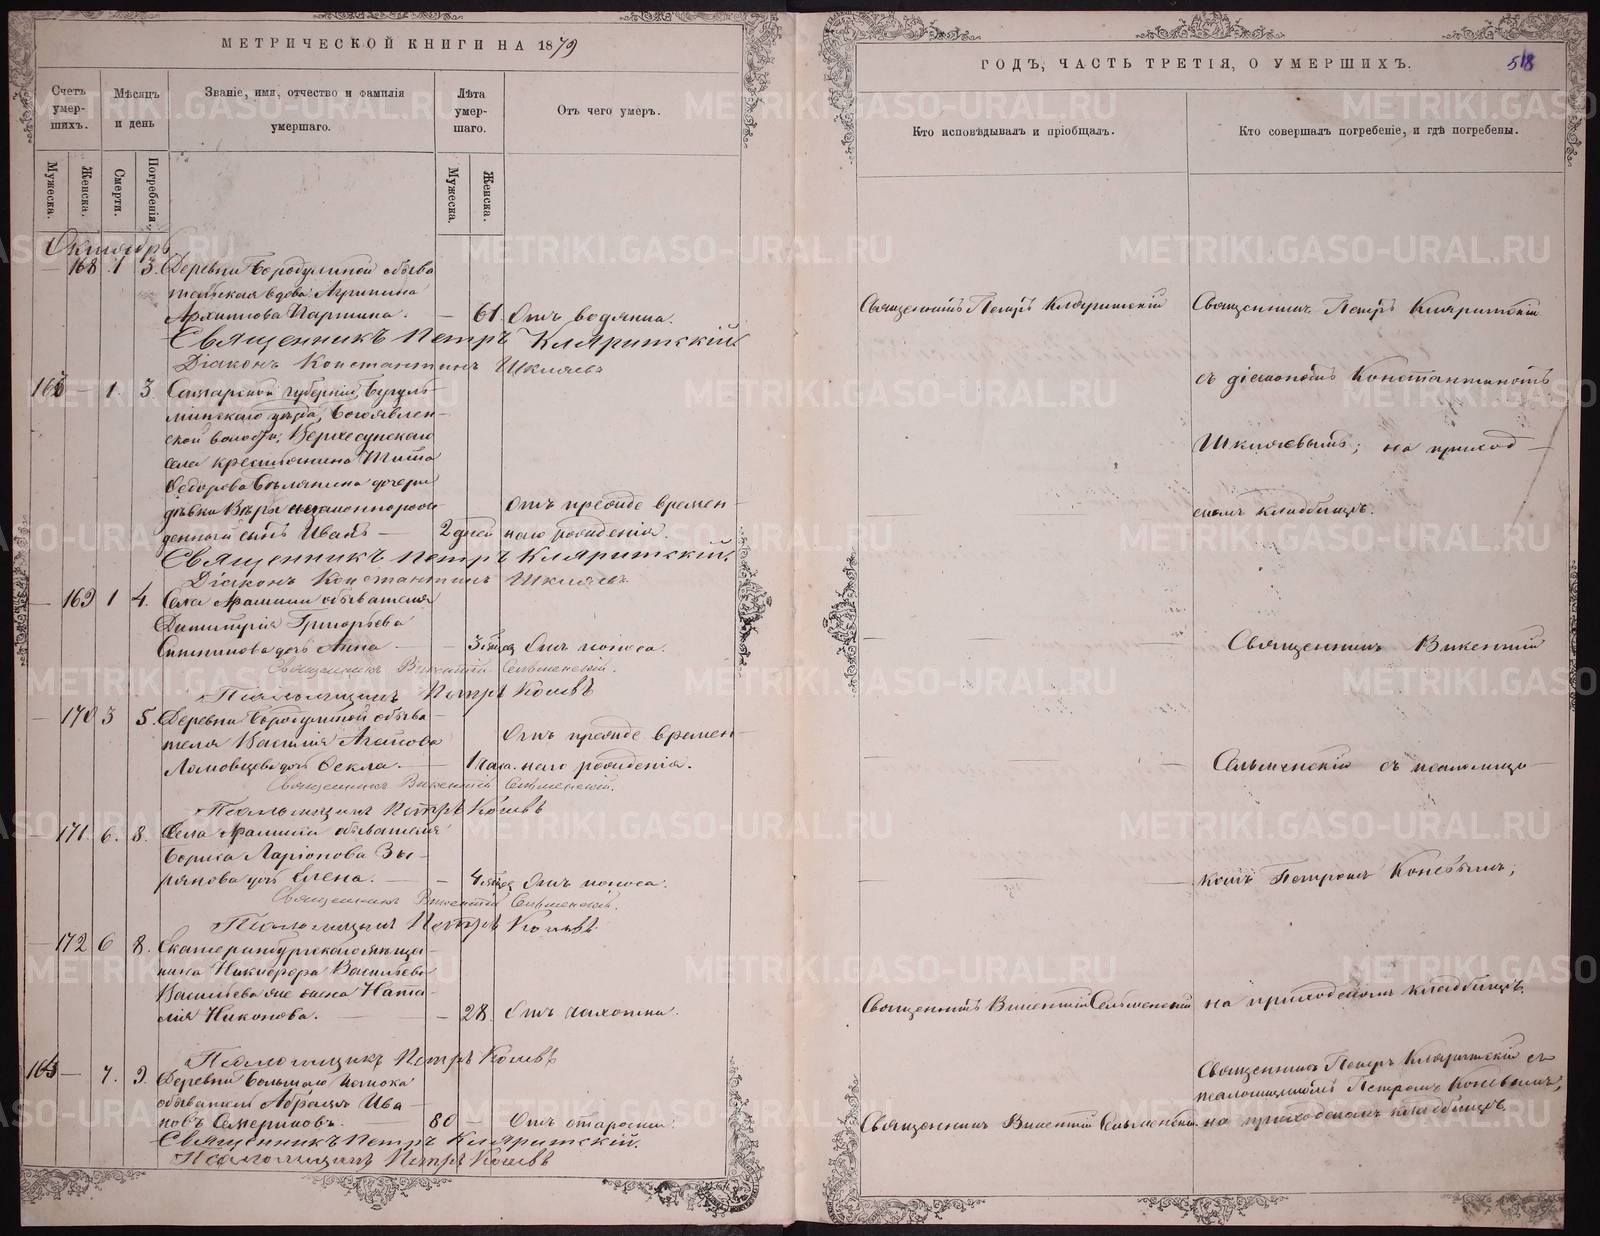 МЕТРИЧЕСКОЙ КНИГИ НА 1879
Счетъ умершихъ.
Мѣсяцъ и день
Званіе, имя, отчество и фамилія умершаго.
Лѣта умершаго.
Отъ чего умеръ.
Мужеска.
Женска.
Смерти.
Погребенія.
Мужеска.
Женска.
Октябрь
168 1 3. Деревни Бородулиной обыва
тельская вдова Агрипина
Архипова Паршина. — 61. Отъ водянки.
Священникъ Петръ Кляритскій
Діаконъ Константинъ Шкляевъ
1. 3. Самарской губерніи, Бугуль-
минскаго уѣзда, Богоявлен-
ской волости,
села крестьянина Тита
Федорова дочери
дѣвки Вѣры незаконнорож Отъ прежде времен-
денный сынъ Иванъ — 2 дней наго рожденія.
Священникъ Петръ Кляритскій.
Діаконъ Константинъ Шкляевъ.
— 169 1 4. Села Арамили обывателя
Димитрія Григорьева
дочь Анна — 3 Отъ поноса.
Священникъ Викентій Сельменскій.
Псаломщикъ Петръ Коневъ
— 170 3 5. Деревни Бородулиной обыва-
теля Василія Агапова Отъ прежде времен-
Ломовцева дочь Фекла. — 1 часа. наго рожденія.
Священникъ Викентій Сельменскій.
Псаломщикъ Петръ Коневъ
171. 6. 8. Села Арамили обывателя
Бориса Ларіонова Зы-
рянова дочь Елена. — 4 Отъ поноса.
Священникъ Викентій Сельменскій.
Псаломщикъ Петръ Коневъ
— 172 6 8. Екатеринбургскаго мѣща-
нина Никифора Васильева
Васильева же жена Ната-
лія Никонова. — 28. Отъ чахотки.
Псаломщикъ Петръ Коневъ
— 7. 9. Деревни Большаго Истока
обыватель Абрамъ Ива-
новъ Семериковъ. 80 — Отъ старости.
Священникъ Петръ Кляритскій.
Псаломщикъ Петръ Коневъ
ГОДЪ, ЧАСТЬ ТРЕТІЯ, О УМЕРШИХЪ.
518
Кто исповѣдывалъ и пріобщалъ.
Кто совершалъ погребеніе, и гдѣ погребены.
Священникъ Петръ Кляритскій
Священникъ Петръ Кляритскій
съ діакономъ Константиномъ
Шкляевымъ; на приход-
скомъ кладбищѣ.
Священникъ Викентій
Сельменскій съ псаломщи-
комъ Петромъ Коневымъ;
Священникъ Викентій Сельменскій
на приходскомъ кладбищѣ.
Священникъ Петръ Кляритскій съ
псаломщикомъ Петромъ Коневымъ,
Священникъ Викентій Сельменскій.
на приходскомъ кладбищѣ.
METRIKI.GASO-URAL.RU